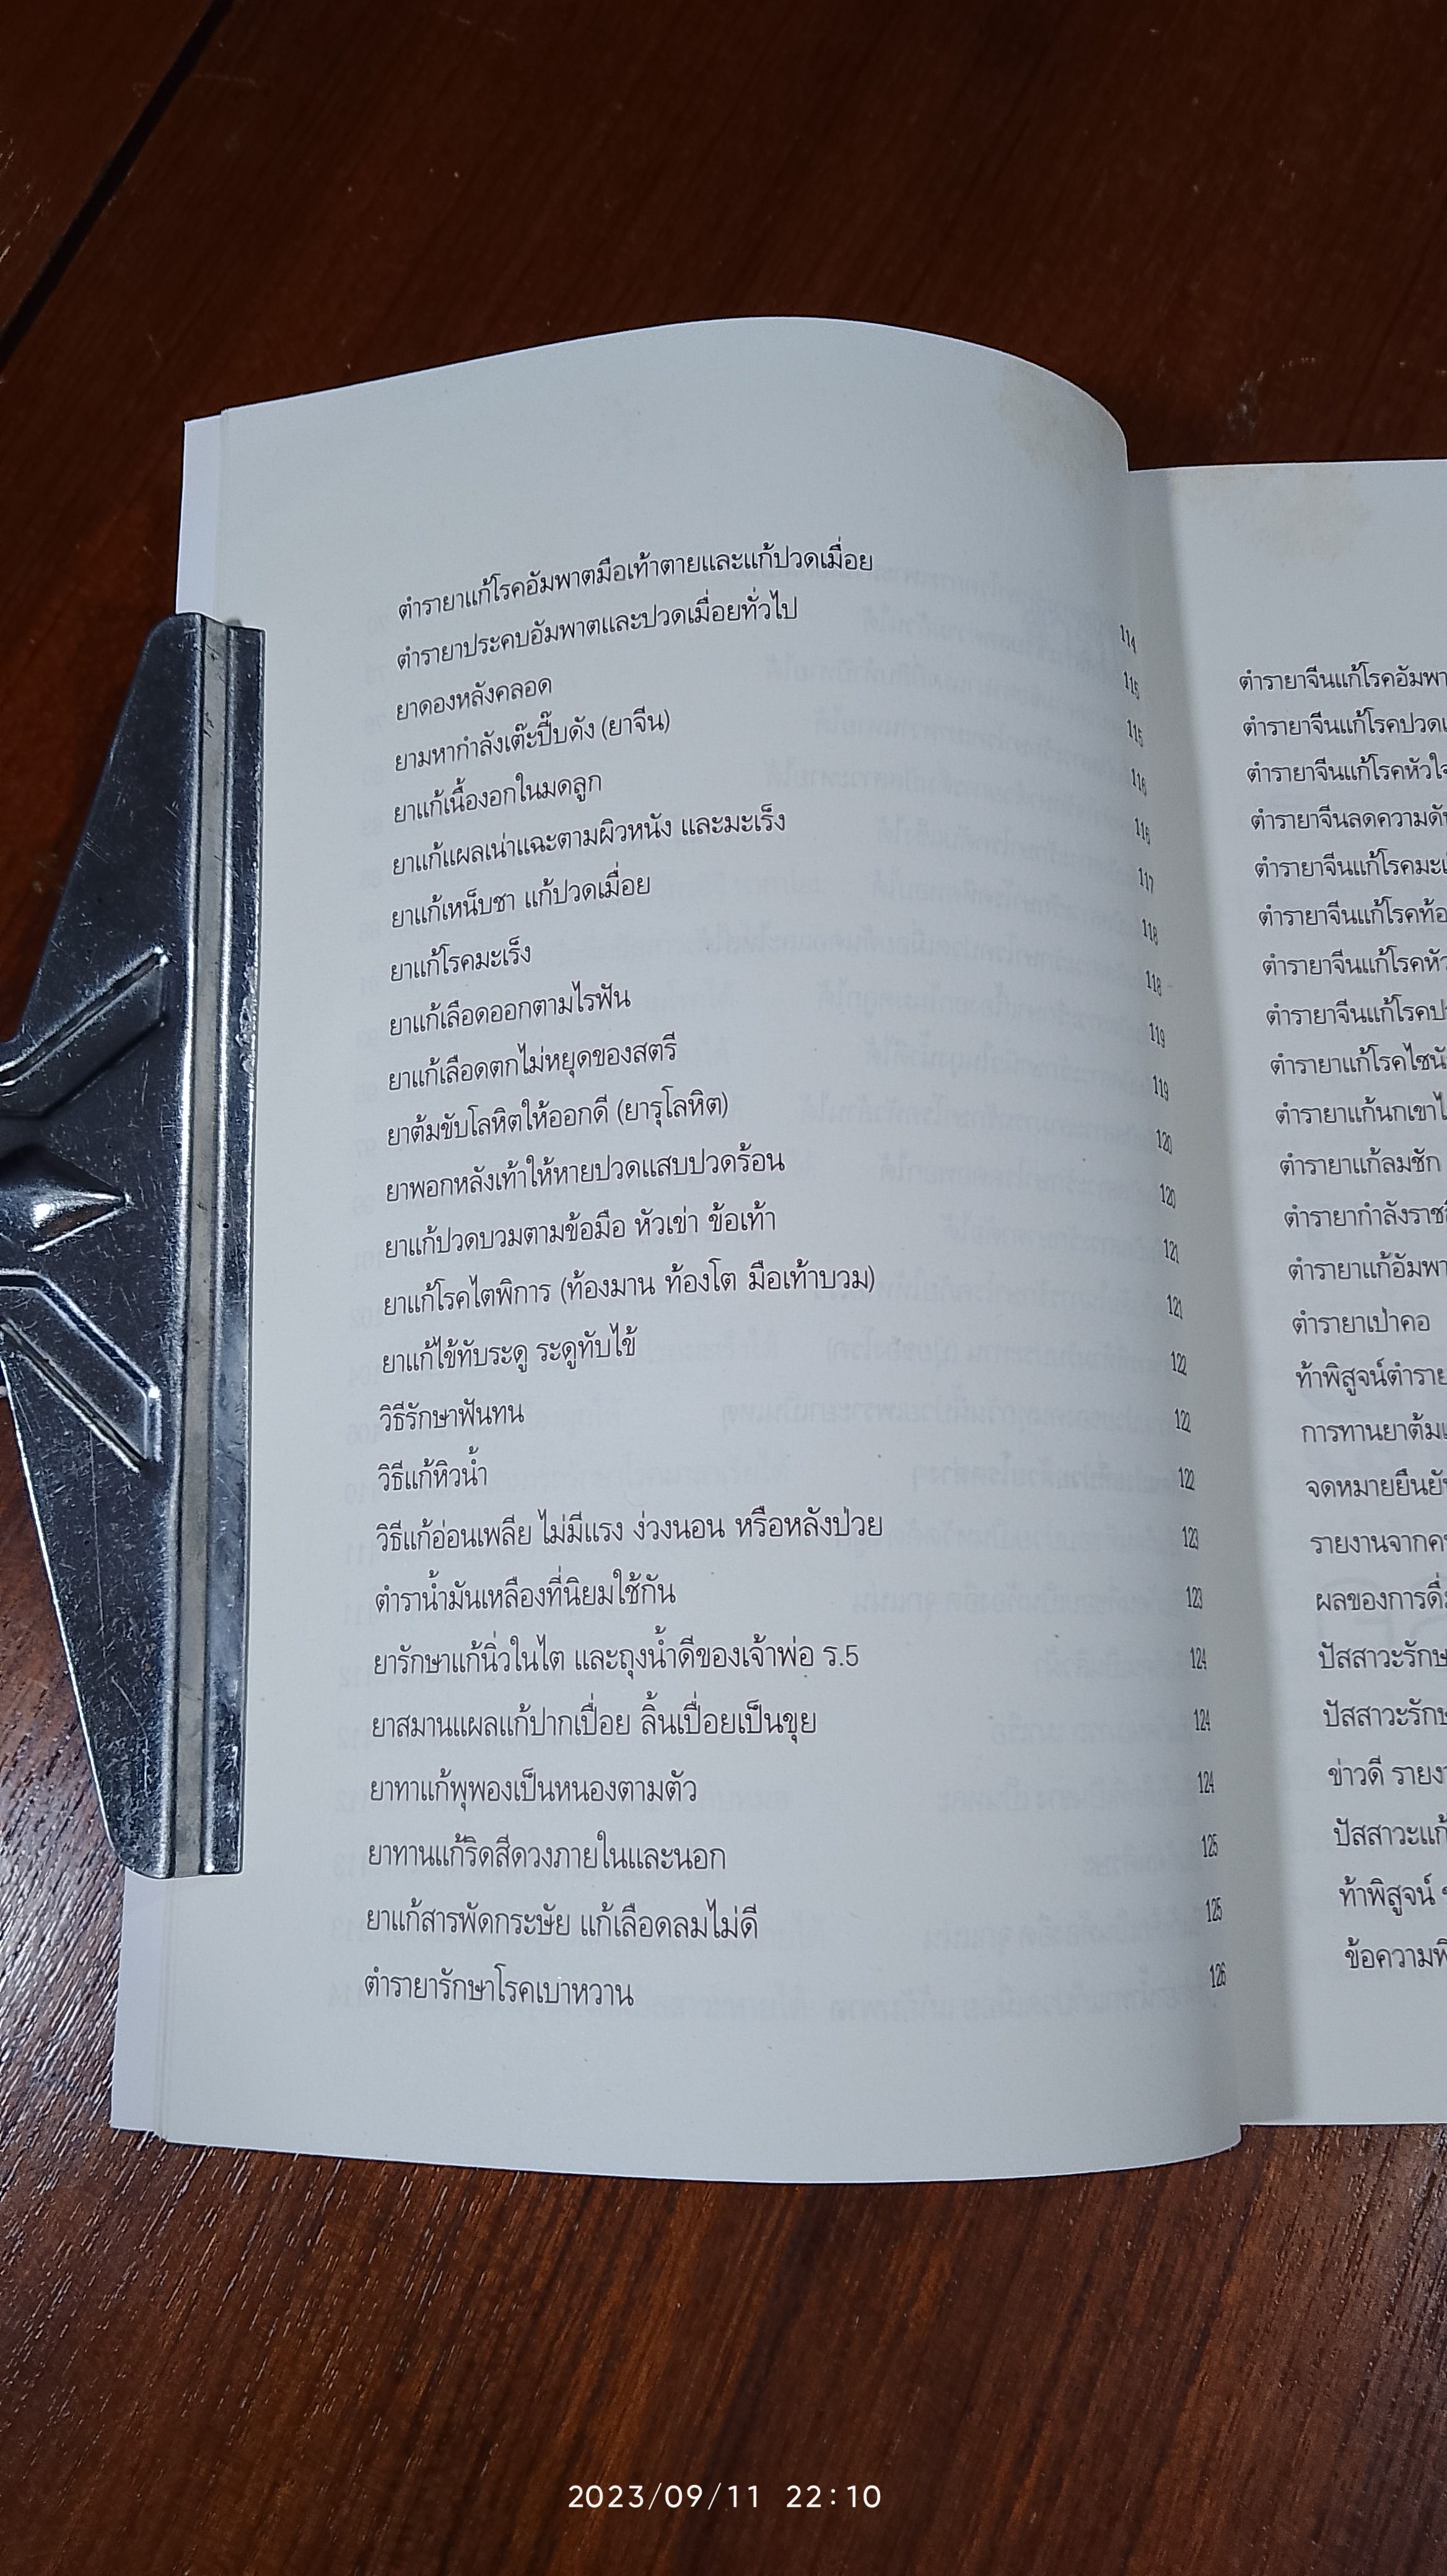 ตำรายาแก้โรคอัมพาตมือเท้าตายและแก้ปวดเมื่อย 114
ตำรายาประคบอัมพาตและปวดเมื่อยทั่วไป 115
ยาดองหลังคลอด 115
ยามหากำลังเต๊ะปี๊บดัง (ยาจีน) 116
ยาแก้เนื้องอกในมดลูก 116
ยาแก้แผลเน่าแฉะตามผิวหนัง และมะเร็ง 117
ยาแก้เหน็บชา แก้ปวดเมื่อย 118
ยาแก้โรคมะเร็ง 118
ยาแก้เลือดออกตามไรฟัน 119
ยาแก้เลือดตกไม่หยุดของสตรี 119
ยาต้มขับโลหิตให้ออกดี (ยารุโลหิต) 120
ยาพอกหลังเท้าให้หายปวดแสบปวดร้อน 120
ยาแก้ปวดบวมตามข้อมือ หัวเข่า ข้อเท้า 121
ยาแก้โรคไตพิการ (ท้องมาน ท้องโต มือเท้าบวม) 121
ยาแก้ไข้ทับระดู ระดูทับไข้ 122
วิธีรักษาฟันทน 122
วิธีแก้หิวน้ำ 122
วิธีแก้อ่อนเพลีย ไม่มีแรง ง่วงนอน หรือหลังป่วย 123
ตำราน้ำมันเหลืองที่นิยมใช้กัน 123
ยารักษาแก้นิ่วในไต และถุงน้ำดีของเจ้าพ่อ ร.5 124
ยาสมานแผลแก้ปากเปื่อย ลิ้นเปื่อยเป็นขุย 124
ยาทาแก้พุพองเป็นหนองตามตัว 124
ยาทานแก้ริดสีดวงภายในและนอก 125
ยาแก้สารพัดกระษัย แก้เลือดลมไม่ดี 125
ตำรายารักษาโรคเบาหวาน 126
ตำรายาจีนแก้โรคอัมพา
ตำรายาจีนแก้โรคปวดเ
ตำรายาจีนแก้โรคหัวใจ
ตำรายาจีนลดความดัน
ตำรายาจีนแก้โรคมะเ
ตำรายาจีนแก้โรคท้อ
ตำรายาจีนแก้โรคหัว
ตำรายาจีนแก้โรคป
ตำรายาแก้โรคไซนั
ตำรายาแก้นกเขาไ
ตำรายาแก้ลมชัก
ตำรายากำลังราช
ตำรายาแก้อัมพา
ตำรายาเป่าคอ
ท้าพิสูจน์ตำราย
การทานยาต้มแ
จดหมายยืนยัน
รายงานจากค
ผลของการดื่ม
ปัสสาวะรักษ
ปัสสาวะรักษ
ข่าวดี รายง
ปัสสาวะแก้
ท้าพิสูจน์
ข้อความพิ
2023/09/11 22:10